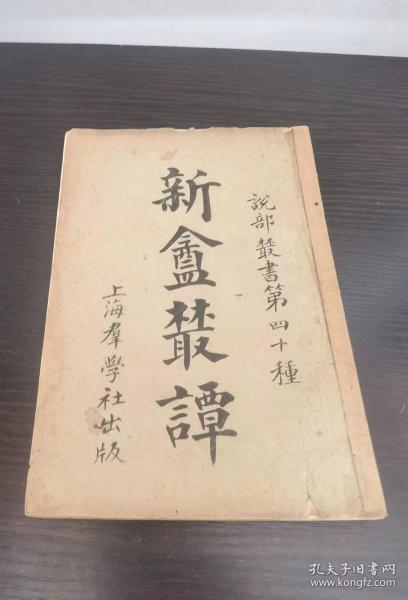 說部叢書第四十種
新盦叢譚
上海羣學社出版
孔夫子旧书网
www.kongfz.com